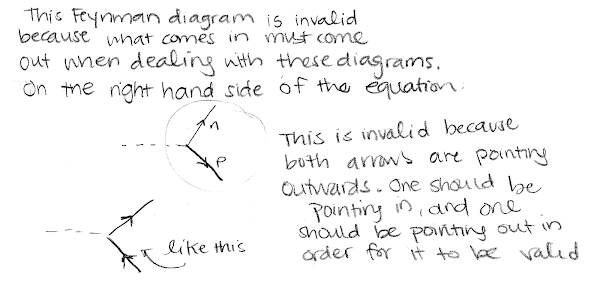 This Feynman diagram is invalid
because what comes in must come
out when dealing with these diagrams.
On the right hand side of the equation:
n
p
This is invalid because
both arrows are pointing
outwards. One should be
pointing in, and one
should be pointing out in
order for it to be valid
like this